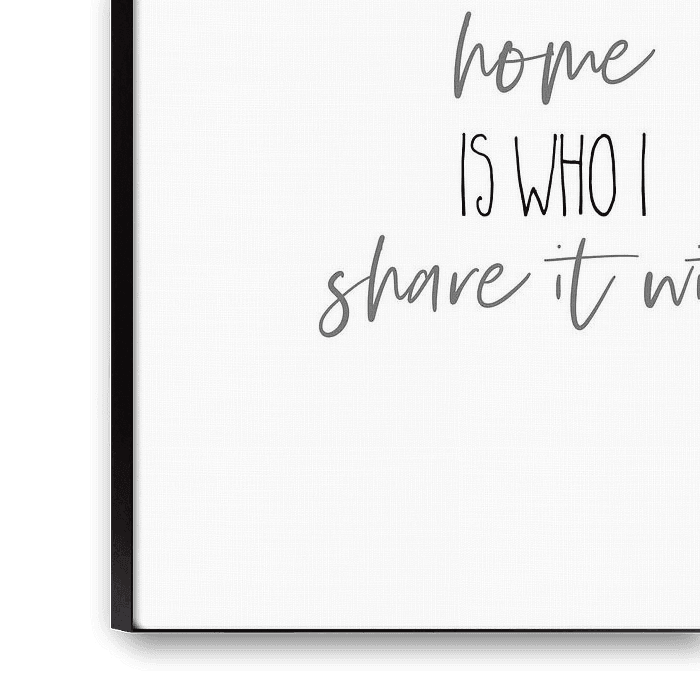 home
IS WHO I
share it wi